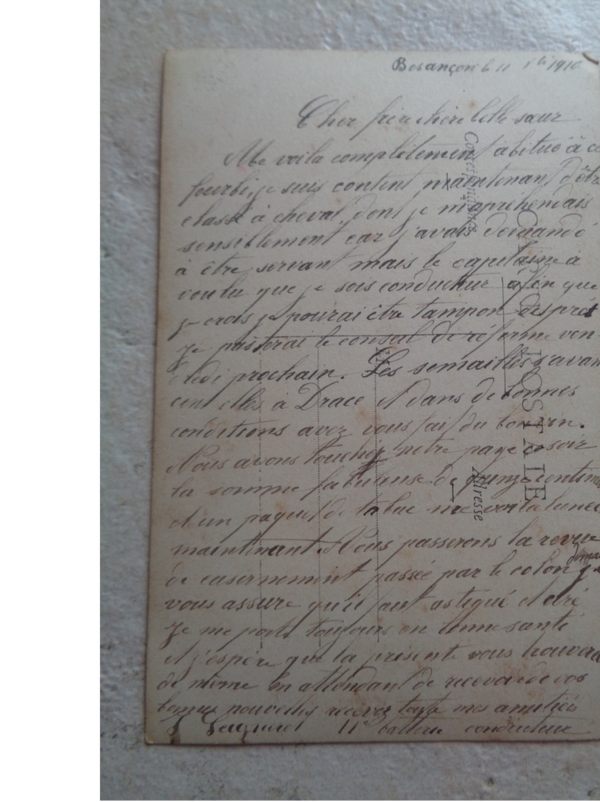 Besançon le 11 1910
Cher frère chère belle sœur
Me voila complètement abitué à ce
fourbi, je suis content maintenant d'être
classé à cheval, dont je m'aprehendais
sensiblement car j'avais demandé
à être servant mais le capitaine à
voulu que je sois conducteur afin que
je crois je pourai être tampon
je passerai le consul de réforme ven
dredi prochain. Les semailles s'avan
cent elles à Dracé et dans de bonnes
conditions avez vous fait du
Nous avons touchez notre paye ce soir
la somme fabuleuse de quinze centimes
et un paquet de tabac me voila lancé
maintenant. Nous passerons la revue
de casernement passée par le colon je
vous assure qu'il faut astiqué et ciré
Je me porte toujours en bonne santé
et j'espère que la présente vous trouvera
de même en attendant de recevoir de vos
bonnes nouvelles recevez toute mes amitiés
11e batterie conducteur
CARTE POSTALE
Correspondance
Adresse